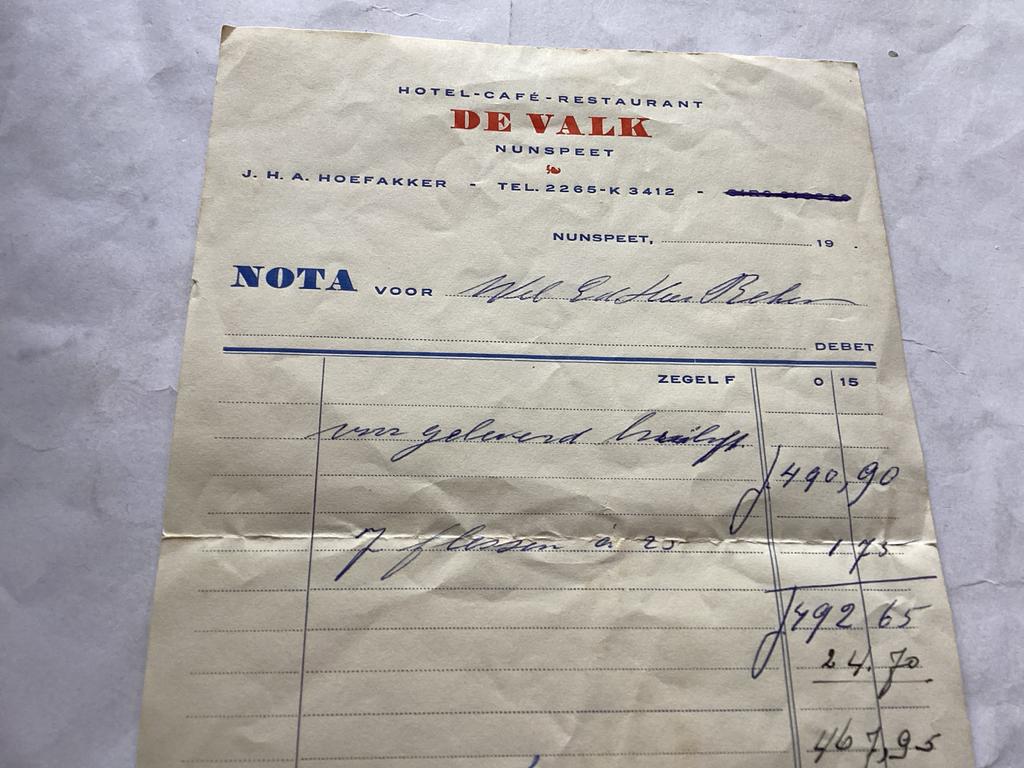 HOTEL-CAFÉ-RESTAURANT
DE VALK
NUNSPEET
J. H. A. HOEFAKKER - TEL. 2265-K 3412 -
NUNSPEET, 19 .
NOTA VOOR Wel Ed Heer
DEBET
ZEGEL F 0 15
voor geleverd
f 490,90
7 flessen à 25 1 75
f 492 65
24.70
467,95